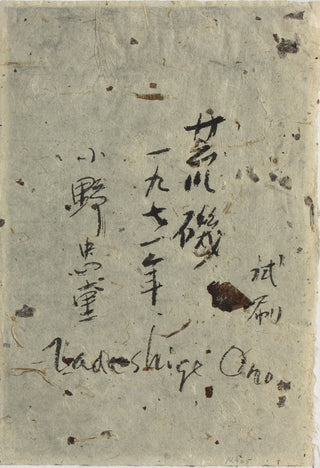 試刷
荒磯
一九七一年
小野忠重
Tadashige Ono